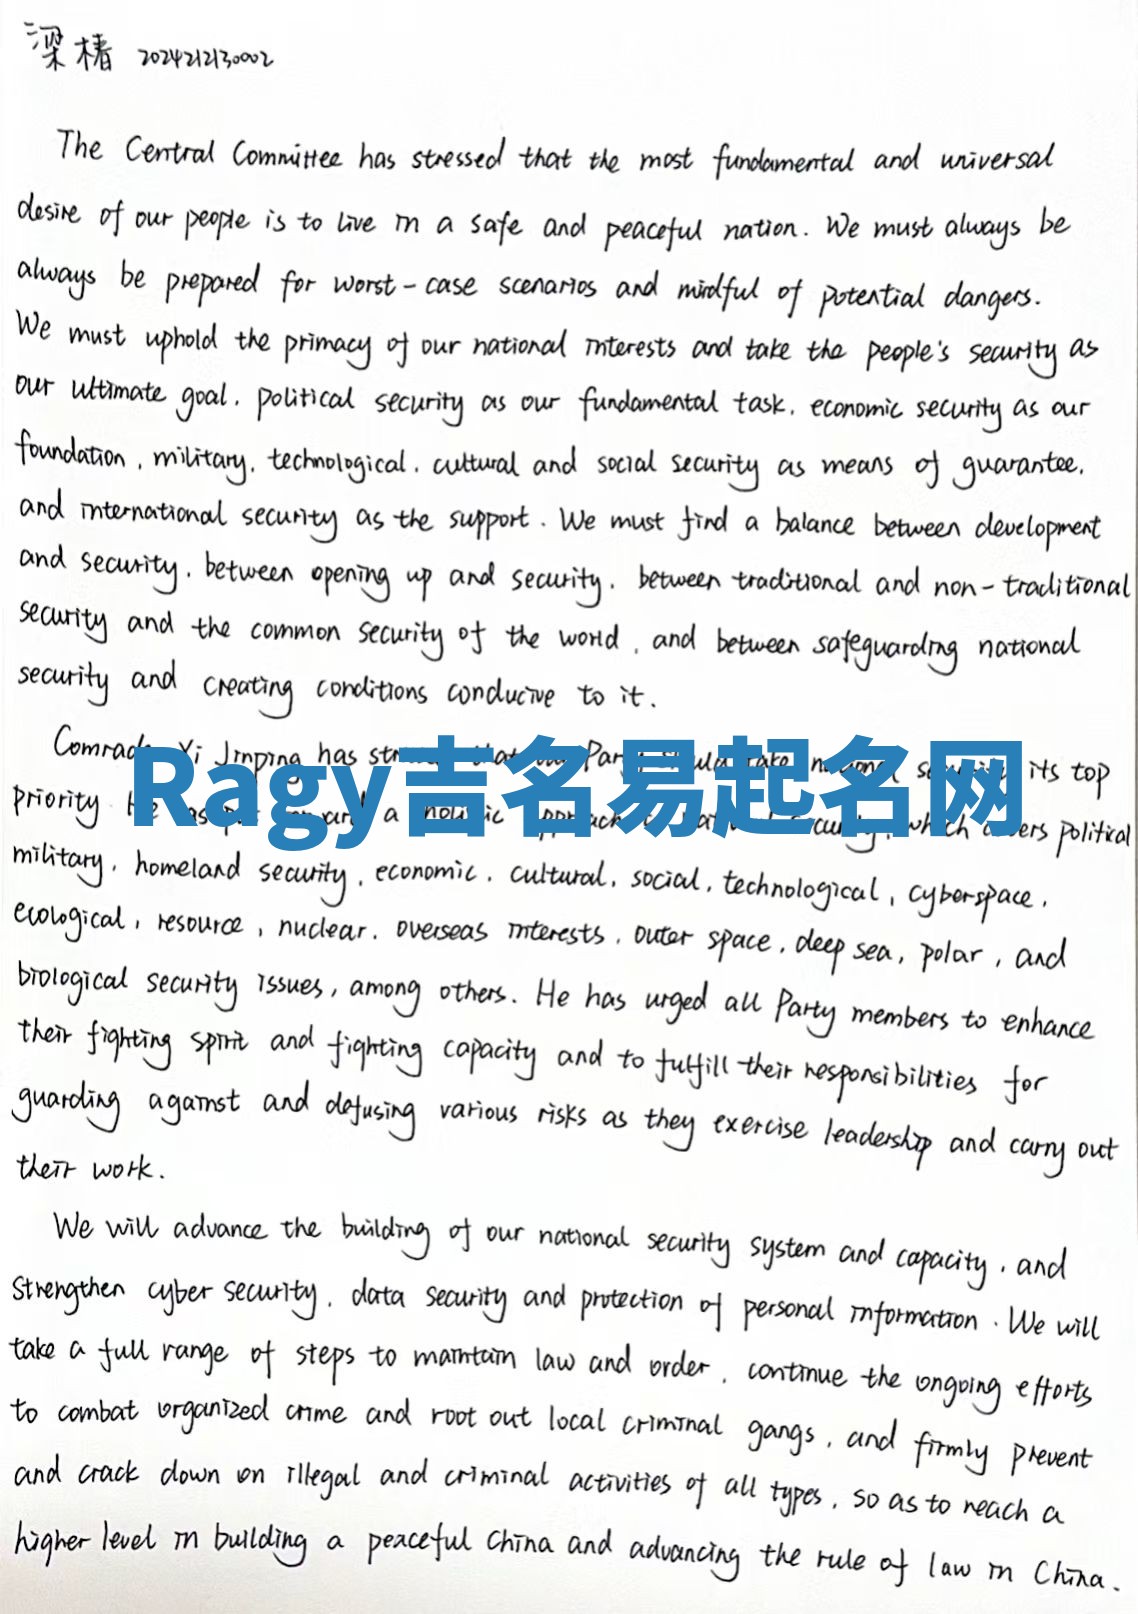 梁椿 2024212130002
The Central Committee has stressed that the most fundamental and universal
desire of our people is to live in a safe and peaceful nation. We must always be
always be prepared for worst-case scenarios and mindful of potential dangers.
We must uphold the primacy of our national interests and take the people's security as
our ultimate goal, political security as our fundamental task, economic security as our
foundation, military, technological, cultural and social security as means of guarantee,
and international security as the support. We must find a balance between development
and security, between opening up and security, between traditional and non-traditional
security and the common security of the world, and between safeguarding national
security and creating conditions conducive to it.
Comrade Xi Jinping has its top
Ragy吉名易起名网
priority He a which political
military, homeland security, economic, cultural, social, technological, cyberspace,
ecological, resource, nuclear, overseas interests, outer space, deep sea, polar, and
biological security issues, among others. He has urged all Party members to enhance
their fighting spirit and fighting capacity and to fulfill their responsibilities for
guarding against and defusing various risks as they exercise leadership and carry out
their work.
We will advance the building of our national security system and capacity, and
strengthen cyber security, data security and protection of personal information. We will
take a full range of steps to maintain law and order, continue the ongoing efforts
to combat organized crime and root out local criminal gangs, and firmly prevent
and crack down on illegal and criminal activities of all types, so as to reach a
higher level in building a peaceful China and advancing the rule of law in China.